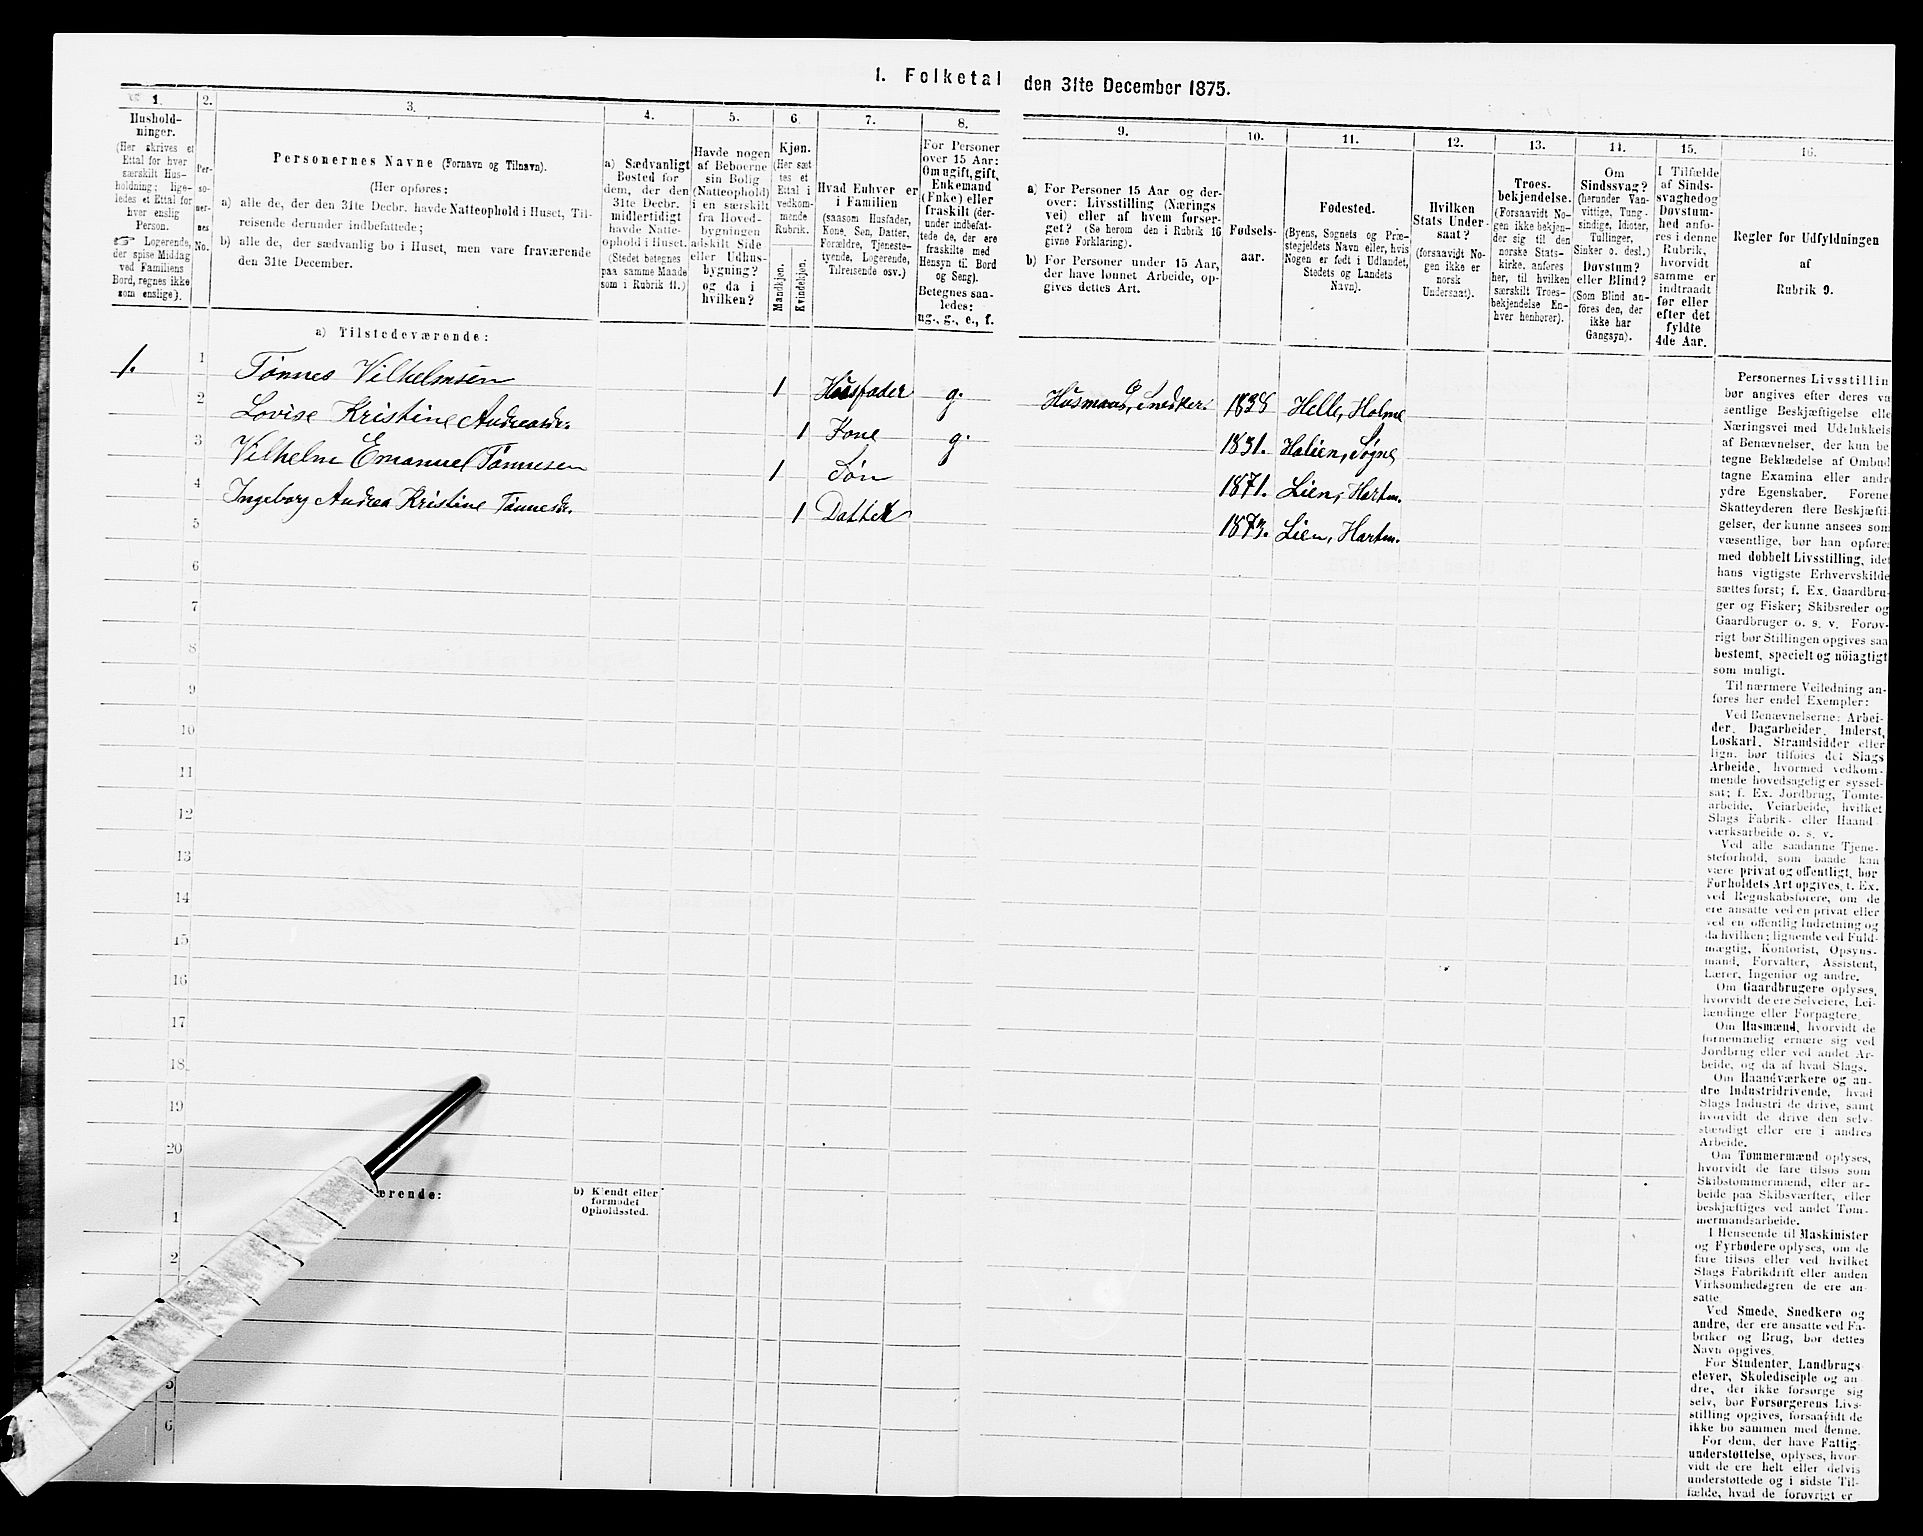 1. Folketal den 31te December 1875.
1.
Hushold-
ninger.
(Her skrives et
Ettal for hver
særskilt Hus-
holdning; lige-
ledes et Ettal for
hver enslig
Person.
☞ Logerende,
der spise Middag
ved Familiens
Bord, regnes ikke
som enslige).
2.
Per-
so-
ner-
nes
No.
3.
Personernes Navne (Fornavn og Tilnavn).
(Her opføres:
a) alle de, der den 31te Decbr. havde Natteophold i Huset, Til-
reisende derunder indbefattede;
b) alle de, der sædvanlig bo i Huset, men vare fraværende
den 31te December.
4.
a) Sædvanligt
Bosted for
dem, der den
31te Decbr.
midlertidigt
havde Natte-
ophold i Huset.
(Stedet betegnes
paa samme Maade
som i Rubrik 11.)
5.
Havde nogen
af Beboerne
sin Bolig
(Natteophold)
i en særskilt
fra Hoved-
bygningen
adskilt Side
eller Udhus-
bygning?
og da i
hvilken?
6.
Kjøn.
(Her sæt
tes et
Ettal i
vedkom-
mende
Rubrik.
Mandkjøn.
Kvindekjøn.
7.
Hvad Enhver er
i Familien
(saasom Husfader,
Kone, Søn, Datter,
Forældre, Tjeneste-
tyende, Logerende,
Tilreisende osv.)
8.
For Personer
over 15 Aar:
Om ugift, gift,
Enkemand
(Enke) eller
fraskilt (der-
under indbefat-
tede de, der ere
fraskilte med
Hensyn til Bord
og Seng).
Betegnes saa-
ledes:
ug., g., e., f.
9.
a) For Personer 15 Aar og der-
over: Livsstilling (Nærings
vei) eller af hvem forsør-
get? (Se herom den i Rubrik 16
givne Forklaring).
b) For Personer under 15 Aar,
der have lønnet Arbeide, op-
gives dettes Art.
10.
Fødsels-
aar.
11.
Fødested.
(Byens, Sognets og Præ-
stegjeldets Navn eller, hvis
Nogen er født i Udlandet,
Stedets og Landets
Navn).
12.
Hvilken
Stats Under-
saat?
(forsaavidt No-
gen ikke er
norsk
Undersaat).
13.
Troes-
bekjendelse.
(Forsaavidt No-
gen ikke bekjen-
der sig til den
norske Stats-
kirke, anføres
her, til hvilken
særskilt Troes-
bekjendelse En-
hver henhører).
14.
Om
Sindssvag?
(herunder Van-
vittige, Tung-
sindige, Idioter,
Tullinger,
Sinker o. desl.)
Døvstum?
eller Blind?
(Som Blind an-
føres den, der
ikke har
Gangsyn).
15.
I Tilfælde
af Sinds-
svaghed og
Døvstum-
hed anfø-
res i denne
Rubrik,
hvorvidt
samme er
indtraadt
før eller
efter det
fyldte
4de Aar.
16.
Regler for Udfyldningen
af
Rubrik 9.
a) Tilstedeværende:
1. 1 Tønnes Vilhelmsen 1 Husfader g. Husmand, Snedker. 1838 Helle, Holme
2 Lovise Kristine Andreasdr. 1 Kone g. 1831. Søgne
3 Vilhelm Emanuel Tønnesen 1 Søn 1871. Lien, Hartm.
4 Ingeborg Andrea Kristine Tønnesdr. 1 Datter 1873. Lien, Hartm.
5
6
7
8
9
10
11
12
13
14
15
16
17
18
19
20
ærende:
b) Kjendt eller
formodet
Opholdssted.
1
2
5
6
Personernes Livsstillin
bør angives efter deres væ
sentlige Beskjæftigelse elle
Næringsvei med Udelukkels
af Benævnelser, der kun be
tegne Beklædelse af Ombud
tagne Examina eller andre
ydre Egenskaber. Forene
Skatteyderen flere Beskjæfti-
gelser, der kunne ansees som
væsentlige, bør han opføres
med dobbelt Livsstilling, idet
hans vigtigste Erhvervskilde
sættes først; f. Ex. Gaardbru-
ger og Fisker; Skibsreder og
Gaardbruger o. s. v. Forøv-
rigt bør Stillingen opgives saa
bestemt, specielt og nöiagtigt
som muligt.
Til nærmere Veiledning an-
føres her endel Exempler:
Ved Benævnelserne: Arbei-
der, Dagarbeider, Inderst,
Løskarl, Strandsidder eller
lign. bør tilføies det Slags
Arbeide, hvormed vedkom-
mende hovedsagelig er syssel-
sat; f. Ex. Jordbrug, Tomte-
arbeide, Veiarbeide, hvilket
Slags Fabrik- eller Haand-
værksarbeide o. s. v.
Ved alle saadanne Tjene-
steforhold, som baade kan
være privat og offentligt, bør
Forholdets Art opgives, t. Ex.
ved Regnskabsførere, om de
ere ansatte ved en privat eller
ved en offentlig Indretning og
da hvilken; lignende ved Fuld-
mægtig, Kontorist, Opsyns-
mand, Forvalter, Assistent,
Lærer, Ingeniør og andre.
Om Gaardbrugere oplyses,
hvorvidt de ere Selveiere, Lei-
lændinge eller Forpagtere.
Om Husmænd, hvorvidt de
fornemmelig ernære sig ved
Jordbrug eller ved andet Ar-
beide, og da af hvad Slags.
Om Haandværkere og an-
dre Industridrivende, hvad
Slags Industri de drive, samt
hvorvidt de drive den selv-
stændigt eller ere i andres
Arbeide.
Om Tømmermænd oplyses,
hvorvidt de fare tilsøs som
Skibstømmermænd, eller ar-
beide paa Skibsværfter, eller
beskjæftiges ved andet Tøm-
mermandsarbeide.
I Henseende til Maskinister
og Fyrbødere oplyses, om de
fare tilsøs eller ved hvilket
Slags Fabrikdrift eller anden
Virksomhedsgren de ere an-
satte
Ved Smede, Snedkere og
andre, der ere ansatte ved Fa-
briker og Brug, bør dettes
Navn opgives.
For Studenter, Landbrugs
elever, Skoledisciple og an
dre, der ikke forsørge sig
selv, bør Forsørgerens Livs-
stilling opgives, forsaavidt de
ikke bo sammen med denne.
For dem, der have Fattig-
understøttelse, oplyses, hvor-
vidt de ere helt eller delvis
understøttede og i sidste Til-
fælde, hvad de forøvrigt er